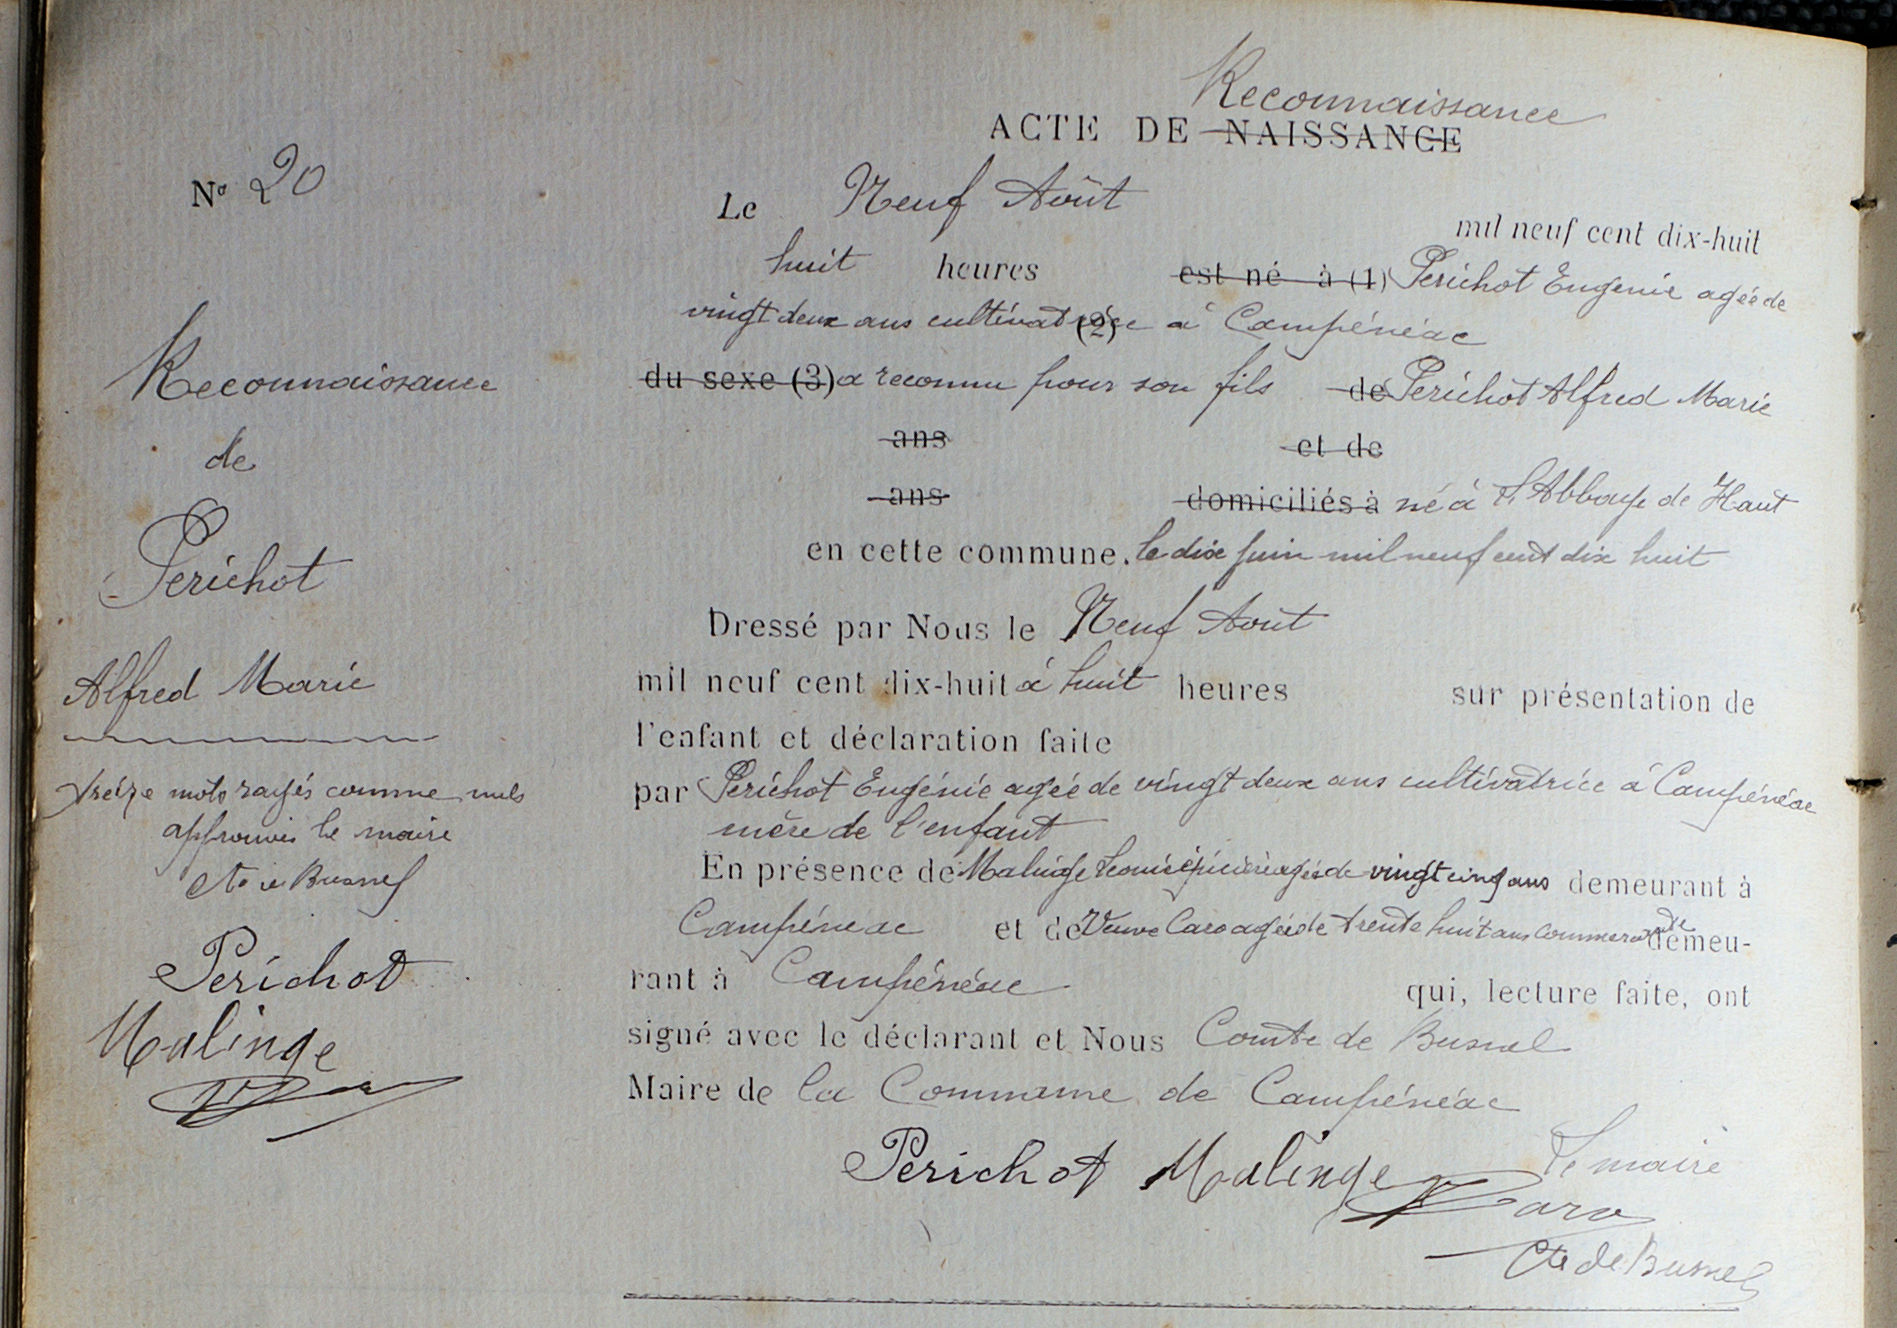 Reconnaissance
ACTE DE NAISSANCE
N° 20
Le Neuf Août mil neuf cent dix-huit
huit heures est né à (1) Perichot Eugenie agée de
vingt deux ans cultivatrice (2) à Campénéac
du sexe (3) a reconnu pour son fils de Perichot Alfred Marie
ans et de
ans domiciliés à né à L'Abbaye de Haut
en cette commune. le dix juin mil neuf cent dix huit
Dressé par Nous le Neuf Août
mil neuf cent dix-huit à huit heures sur présentation de
l'enfant et déclaration faite
par Perichot Eugénie agée de vingt deux ans cultivatrice à Campénéac
mère de l'enfant
En présence de Malinge Louise épicière agée de vingt cinq ans demeurant à
Campénéac et de Veuve Caro agée de trente huit ans commercante demeu-
rant à Campénéac qui, lecture faite, ont
signé avec le déclarant et Nous Comte de Busnel
Maire de la Commune de Campénéac
Perichot Malinge Le maire
Caro
Cte de Busnel
Reconnaissance
de
Perichot
Alfred Marie
treize mots rayés comme nuls
approuvés le maire
Cte de Busnel
Perichot
Malinge